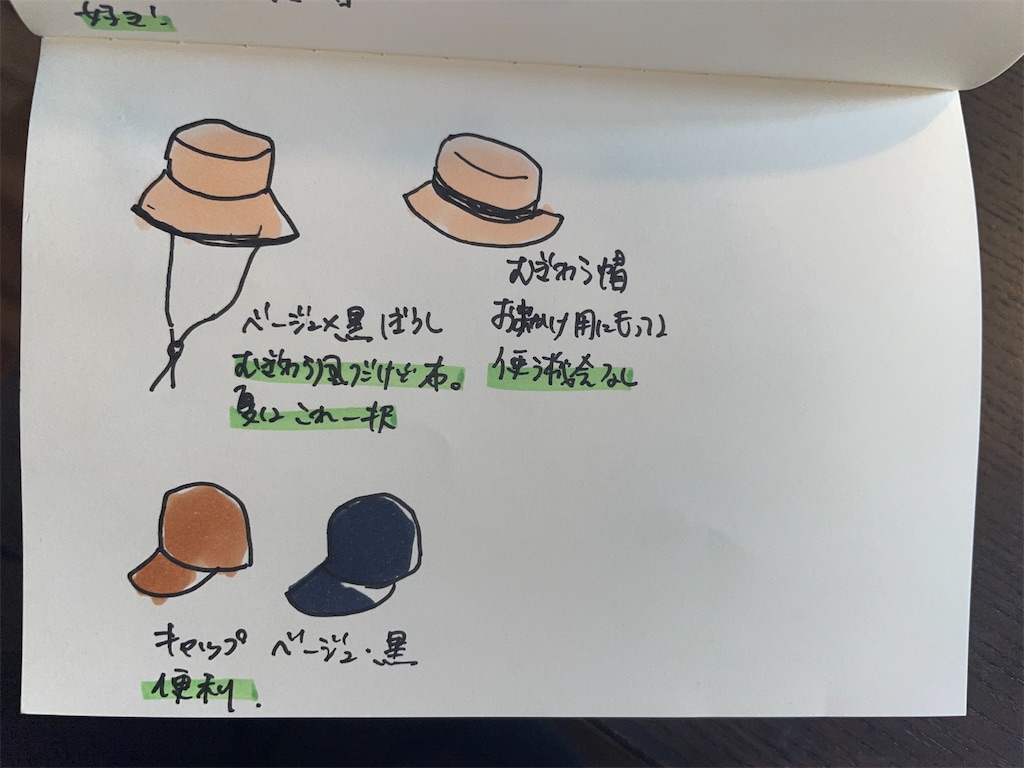 好き！
ベージュ×黒 ぼうし
むぎわら風だけど布。
夏は これ一択
むぎわら帽
お出かけ用にもってる
使う機会なし
キャップ ベージュ・黒
便利.